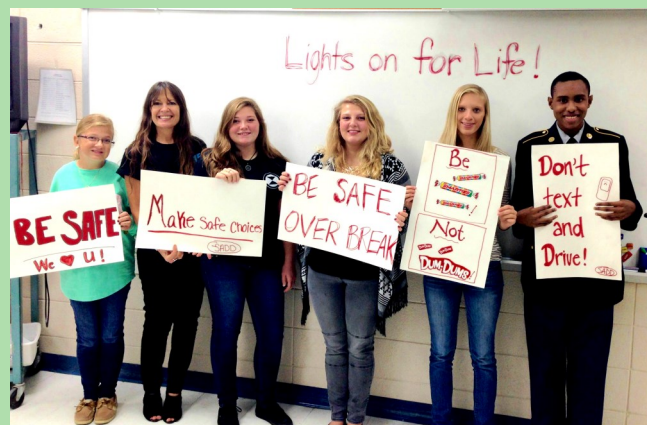 Lights on for Life!
BE SAFE
We ♥ U!
Make Safe Choices
SADD
BE SAFE
OVER BREAK
Be
Not
DUM-DUMS
Don't
text
and
Drive!
SADD